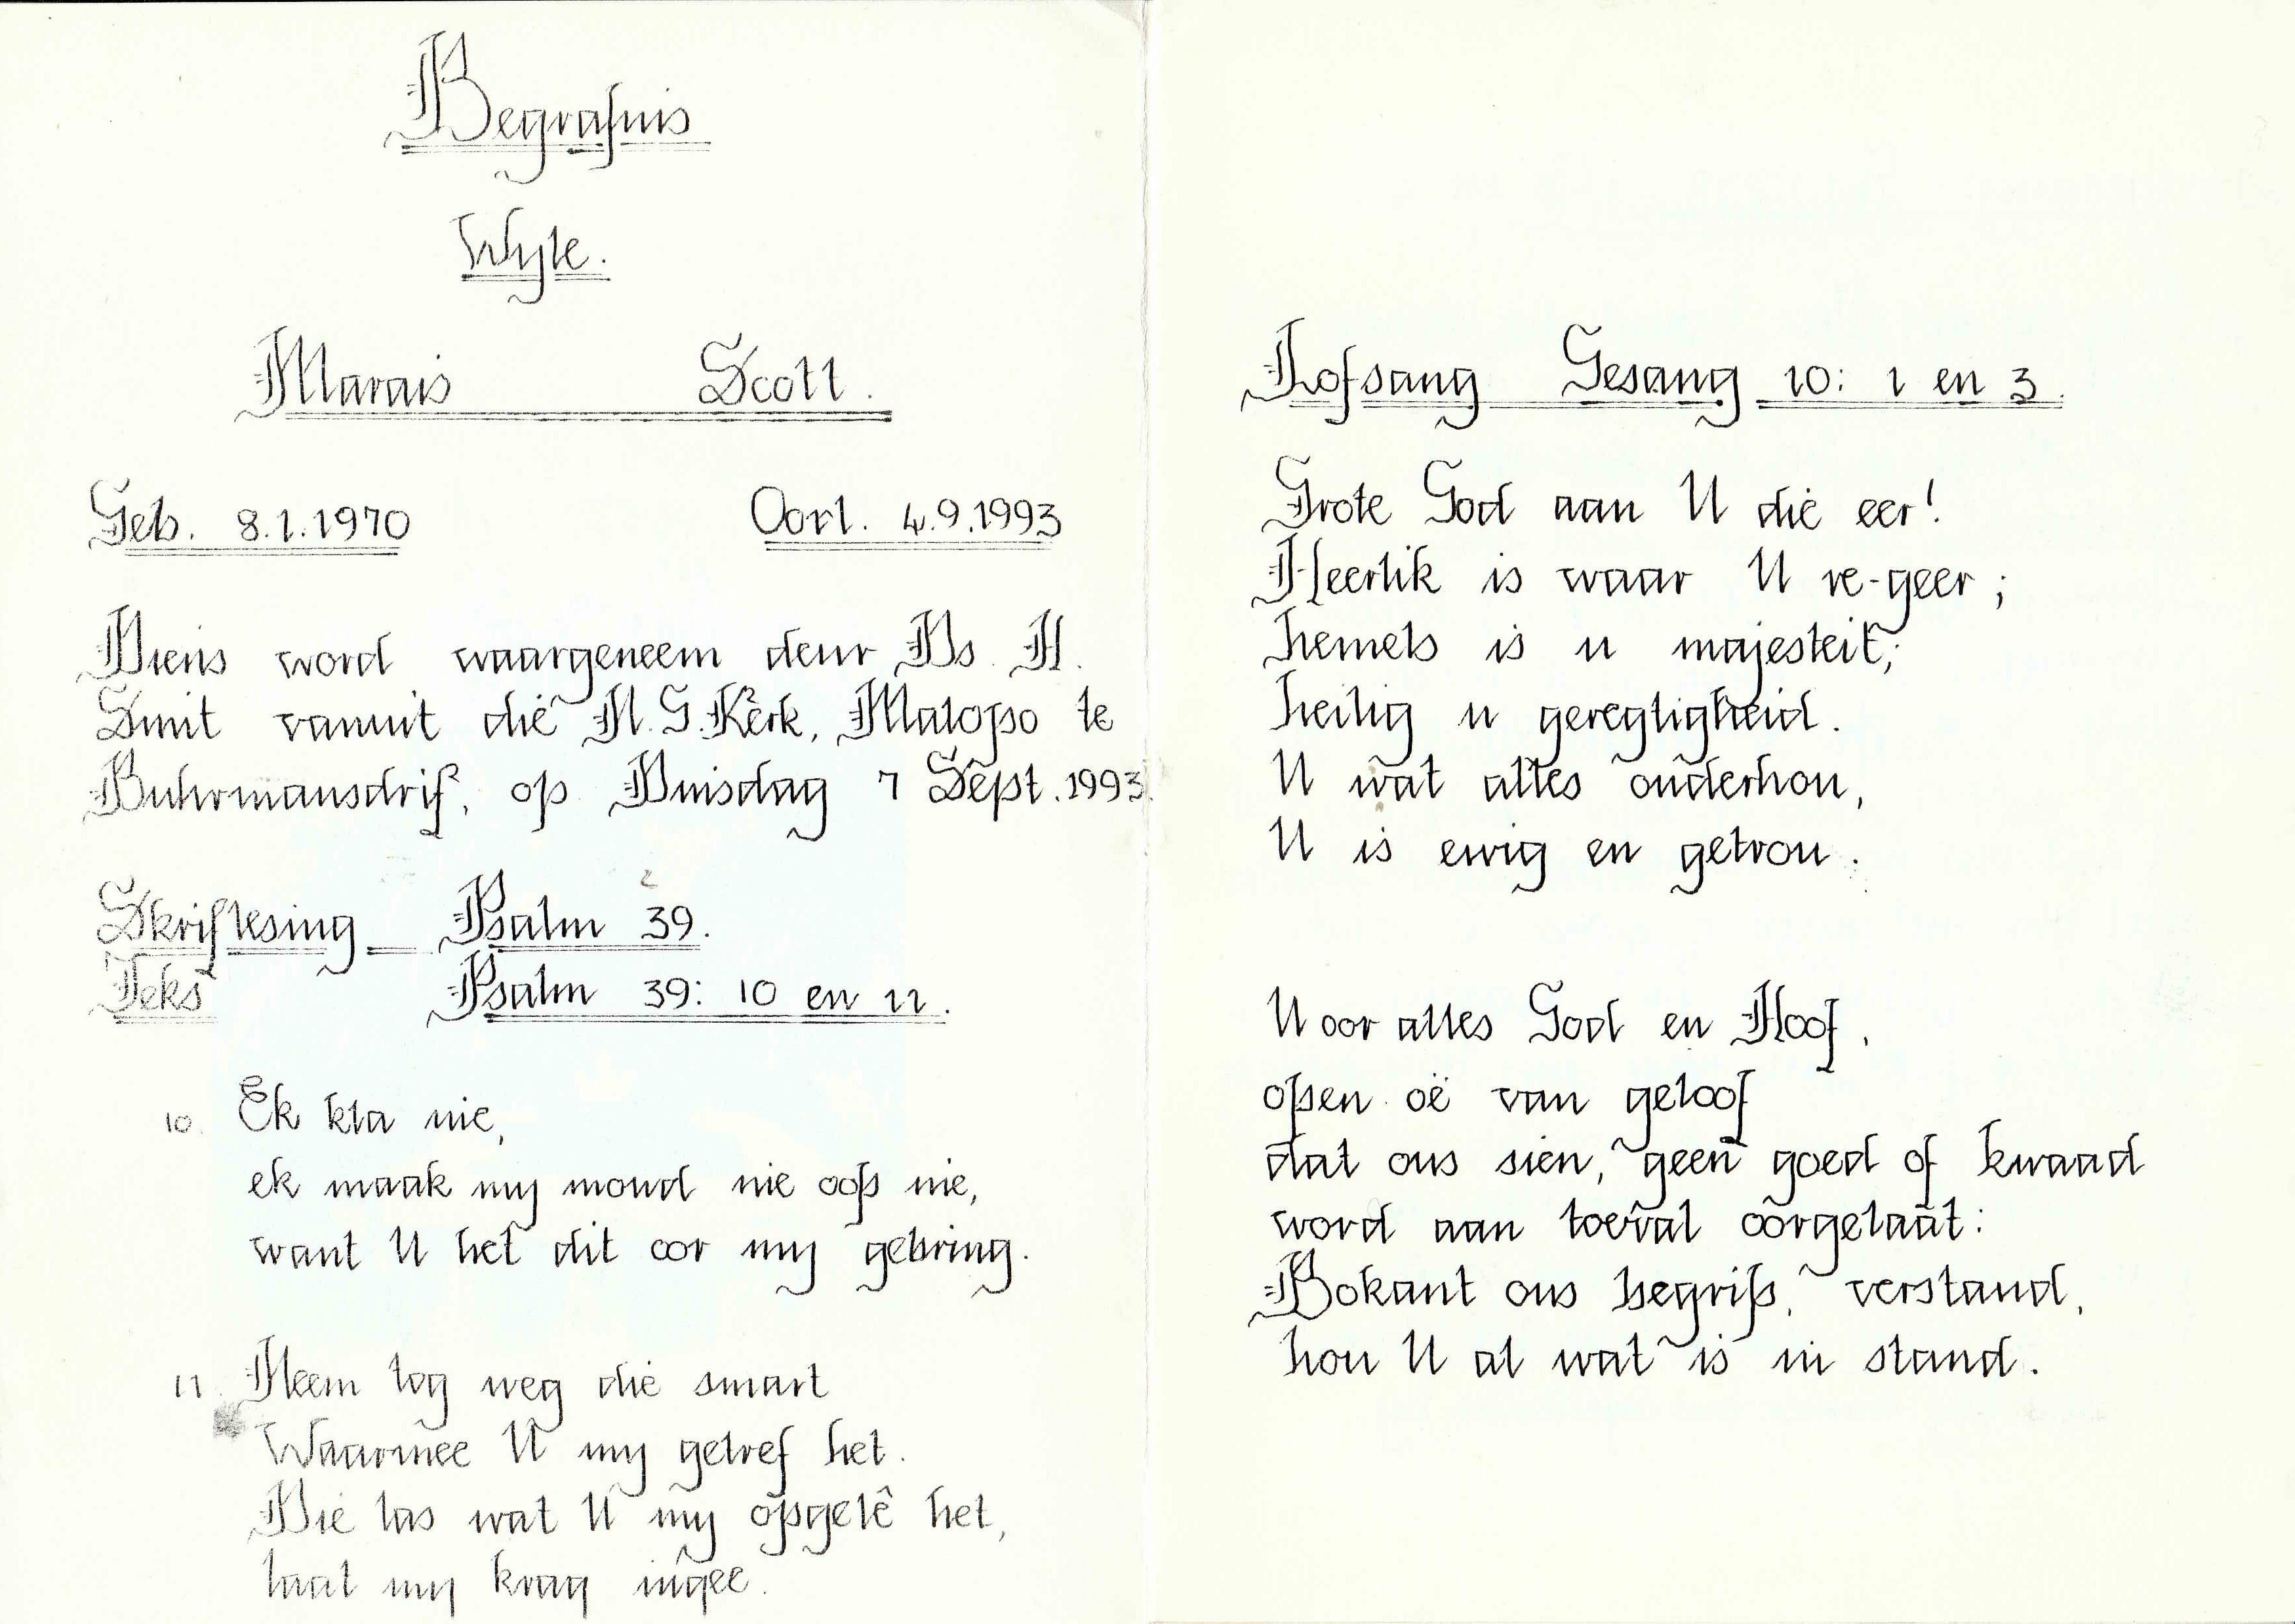 Begrafnis
Wyle.
Marais Scott.
Geb. 8.1.1970 Oorl. 4.9.1993
Diens word waargeneem deur Ds. H.
Smit vanuit die N.G.Kerk, Matopo te
Buhrmansdrif, op Dinsdag 7 Sept. 1993.
Skriflesing Psalm 39.
Teks Psalm 39: 10 en 11.
10. Ek kla nie,
ek maak my mond nie oop nie,
want U het dit oor my gebring.
11. Neem tog weg die smart
Waarmee U my getref het.
Die las wat U my opgelê het,
laat my krag ingee.
Lofsang Gesang 10: 1 en 3.
Grote God aan U die eer!
Heerlik is waar U re-geer;
hemels is u majesteit;
heilig u geregtigheid.
U wat alles onderhou,
U is ewig en getrou.
U oor alles God en Hoof,
open oë van geloof
dat ons sien, geen goed of kwaad
word aan toeval oorgelaat:
Bokant ons begrip, verstand,
hou U al wat is in stand.